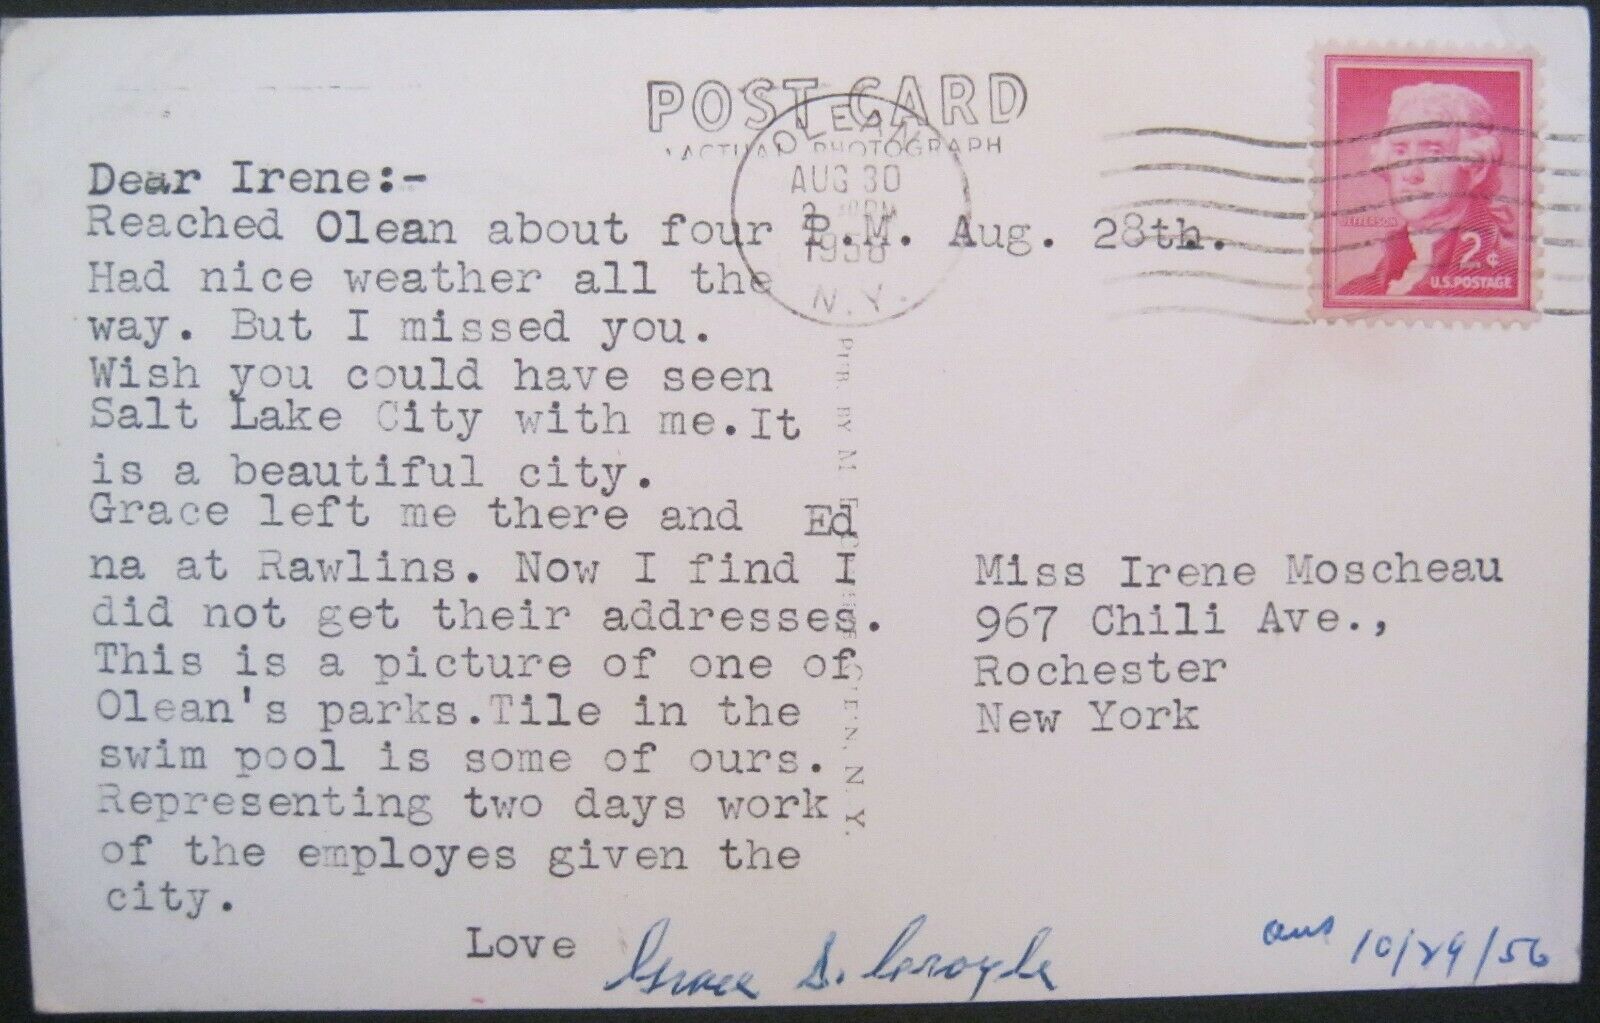 POST CARD
ACTUAL PHOTOGRAPH
OLEAN
AUG 30
PM
N.Y.
JEFFERSON
2¢
U.S. POSTAGE
Dear Irene:-
Reached Olean about four P.M. Aug. 28th.
Had nice weather all the
way. But I missed you.
Wish you could have seen
Salt Lake City with me.It
is a beautiful city.
Grace left me there and Ed
na at Rawlins. Now I find I
did not get their addresses.
This is a picture of one of
Olean's parks.Tile in the
swim pool is some of ours.
Representing two days work
of the employes given the
city.
Love
Grace S.
PUB. BY M.
N.Y.
Miss Irene Moscheau
967 Chili Ave.,
Rochester
New York
ans 10/29/56